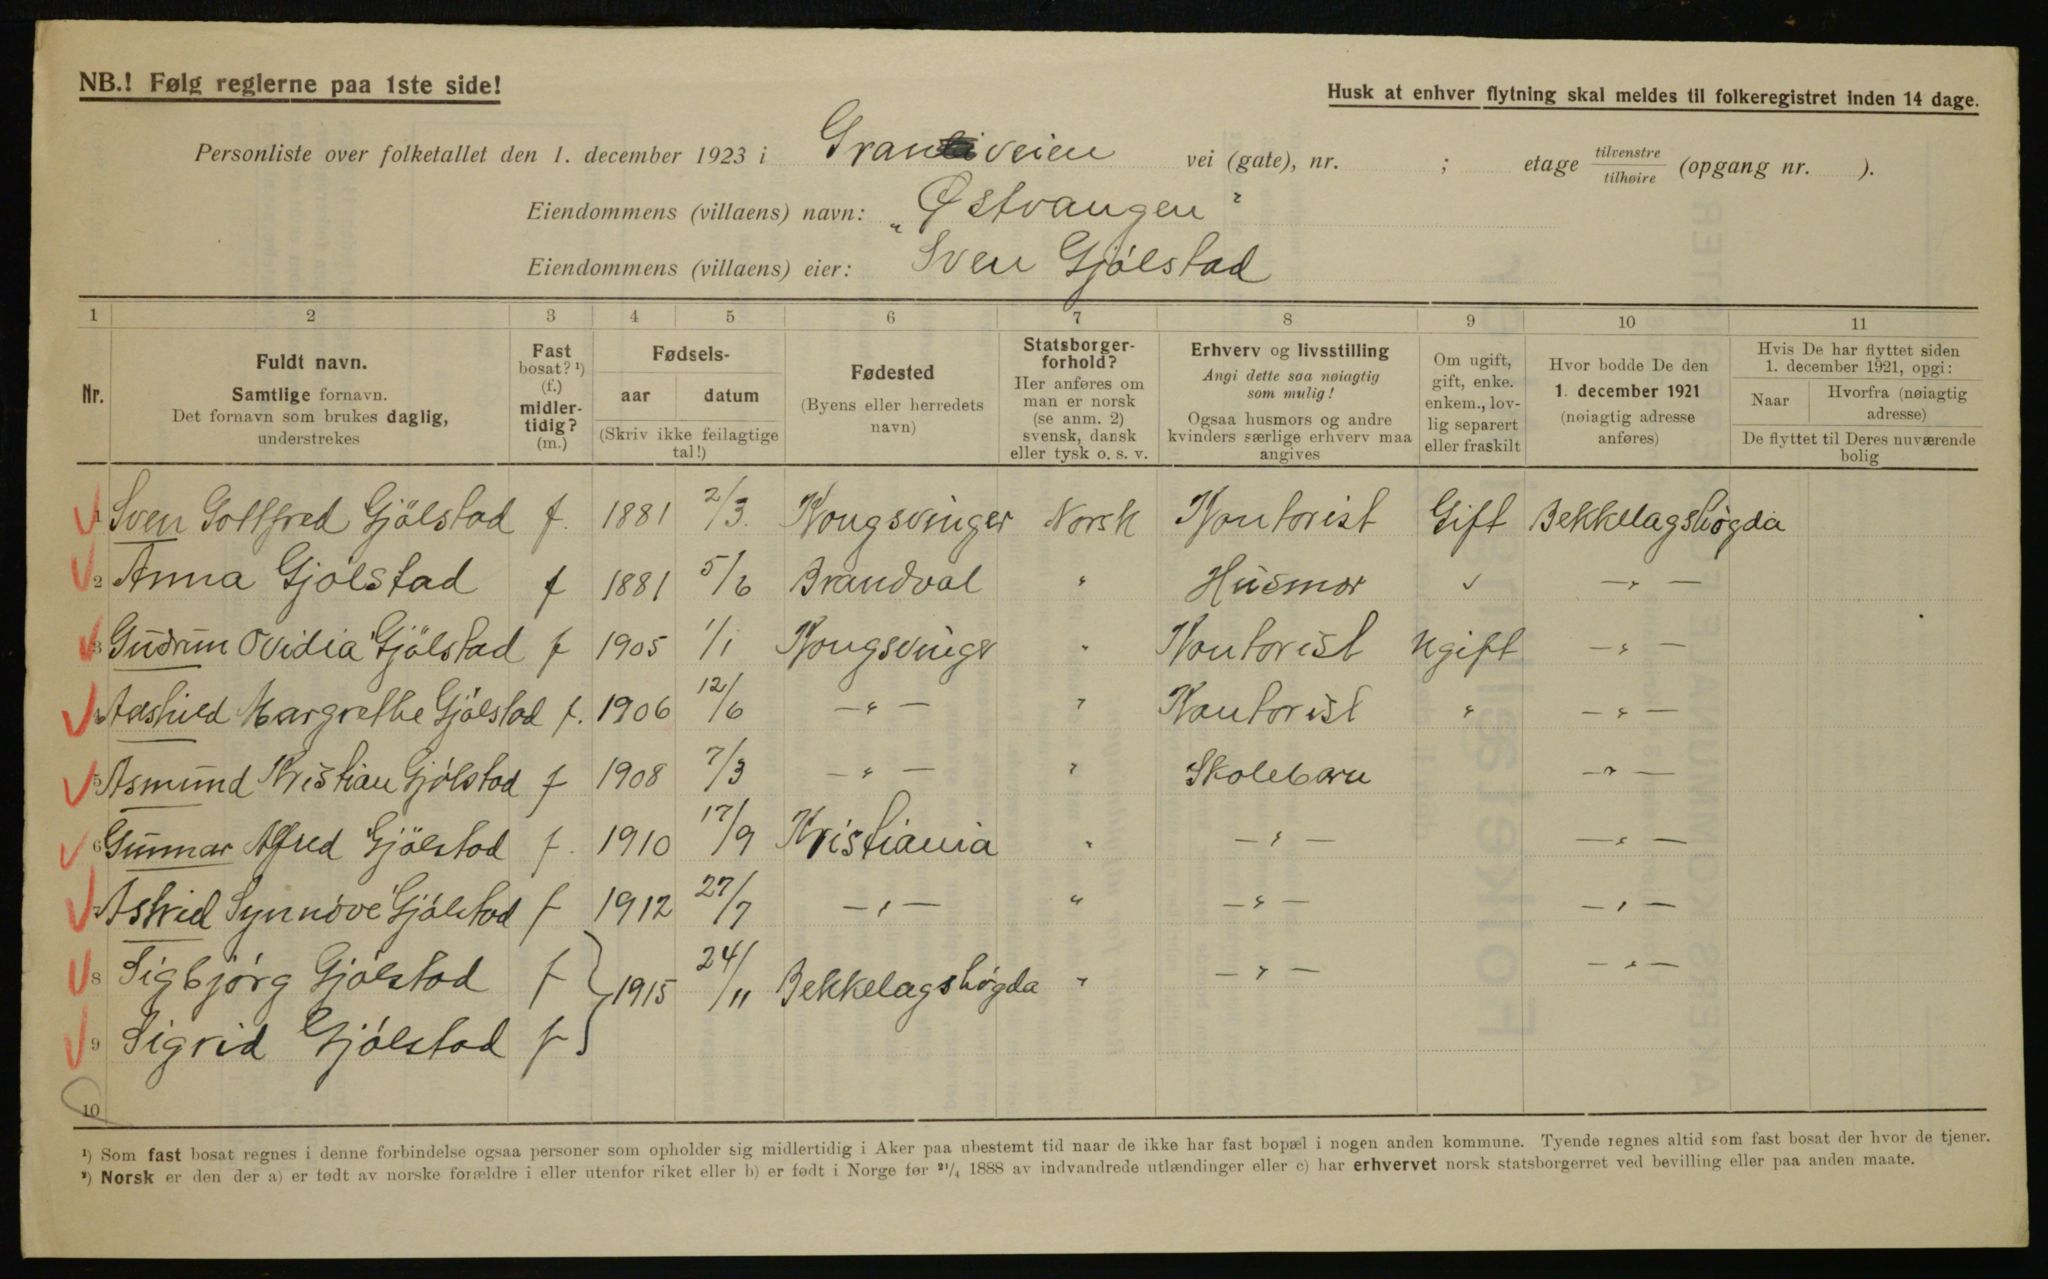 NB.! Følg reglerne paa 1ste side!
Husk at enhver flytning skal meldes til folkeregistret inden 14 dage.
Personliste over folketallet den 1. december 1923 i Granveien vei (gate), nr. ; etage tilvenstre tilhøire (opgang nr. ).
Eiendommens (villaens) navn: „Østvangen"
Eiendommens (villaens) eier: Sven Gjólstad
1 2 3 4 5 6 7 8 9 10 11
Nr.
Fuldt navn.
Samtlige fornavn.
Det fornavn som brukes daglig,
understrekes
Fast
bosat? ¹)
(f.)
midler-
tidig?
(m.)
Fødsels-
aar datum
(Skriv ikke feilagtige
tal!)
Fødested
(Byens eller herredets
navn)
Statsborger-
forhold?
Her anføres om
man er norsk
(se anm. 2)
svensk, dansk
eller tysk o. s. v.
Erhverv og livsstilling
Angi dette saa nøiagtig
som mulig!
Ogsaa husmors og andre
kvinders særlige erhverv maa
angives
Om ugift,
gift, enke.
enkem., lov-
lig separert
eller fraskilt
Hvor bodde De den
1. december 1921
(nøiagtig adresse
anføres)
Hvis De har flyttet siden
1. december 1921, opgi:
Naar
Hvorfra (nøiagtig
adresse)
De flyttet til Deres nuværende
bolig
1 Sven Gottfred Gjölstad f. 1881 2/3. Kongsvinger Norsk Kontorist Gift Bekkelagshøgda
2 Anna Gjólstad f 1881 5/6 Brandval " Husmor " — " —
3 Gudrun Ovidia Gjölstad f 1905 1/1 Kongsvinger " Kontorist Ugift — " —
4 Aashild Margrethe Gjólstad f. 1906 12/6 — " — " Kontorist " — " —
5 Asmund Kristian Gjólstad f 1908 7/3 — " — " Skolebarn — " —
6 Gunnar Alfred Gjölstad f. 1910 17/9 Kristiania " — " — — " —
7 Astrid Synnöve Gjólstad f 1912 27/7 — " — " — " — — " —
8 Sigbjórg Gjólstad f 1915 24/11 Bekkelagshøgda " — " — — " —
9 Sigrid Gjólstad f
10
¹) Som fast bosat regnes i denne forbindelse ogsaa personer som opholder sig midlertidig i Aker paa ubestemt tid naar de ikke har fast bopæl i nogen anden kommune. Tyende regnes altid som fast bosat der hvor de tjener.
²) Norsk er den der a) er født av norske forældre i eller utenfor riket eller b) er født i Norge før ²¹/₄ 1888 av indvandrede utlændinger eller c) har erhvervet norsk statsborgerret ved bevilling eller paa anden maate.